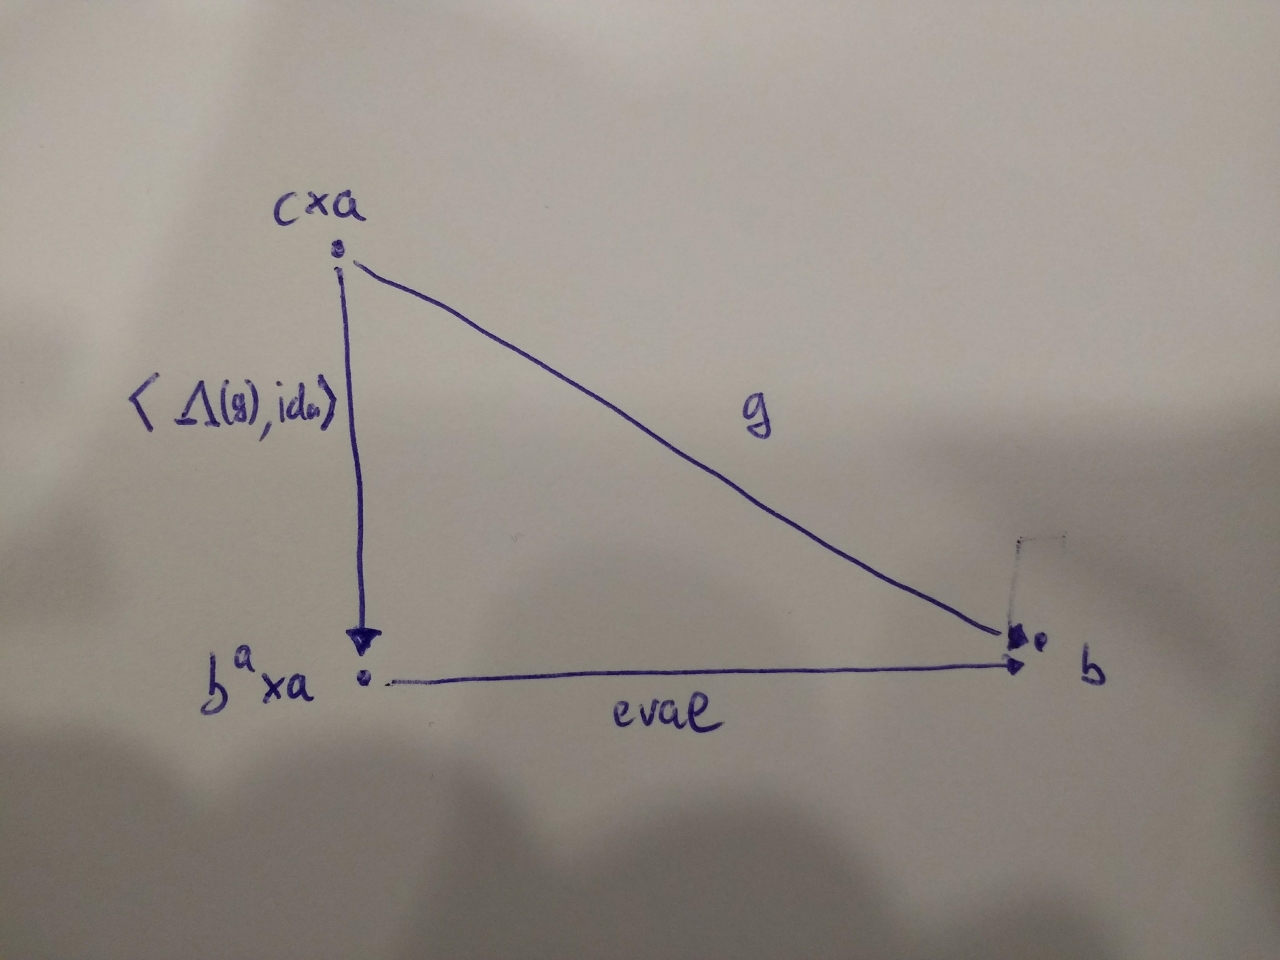 c×a
⟨ Λ(g), idₐ⟩
g
bᵃ×a
b
eval